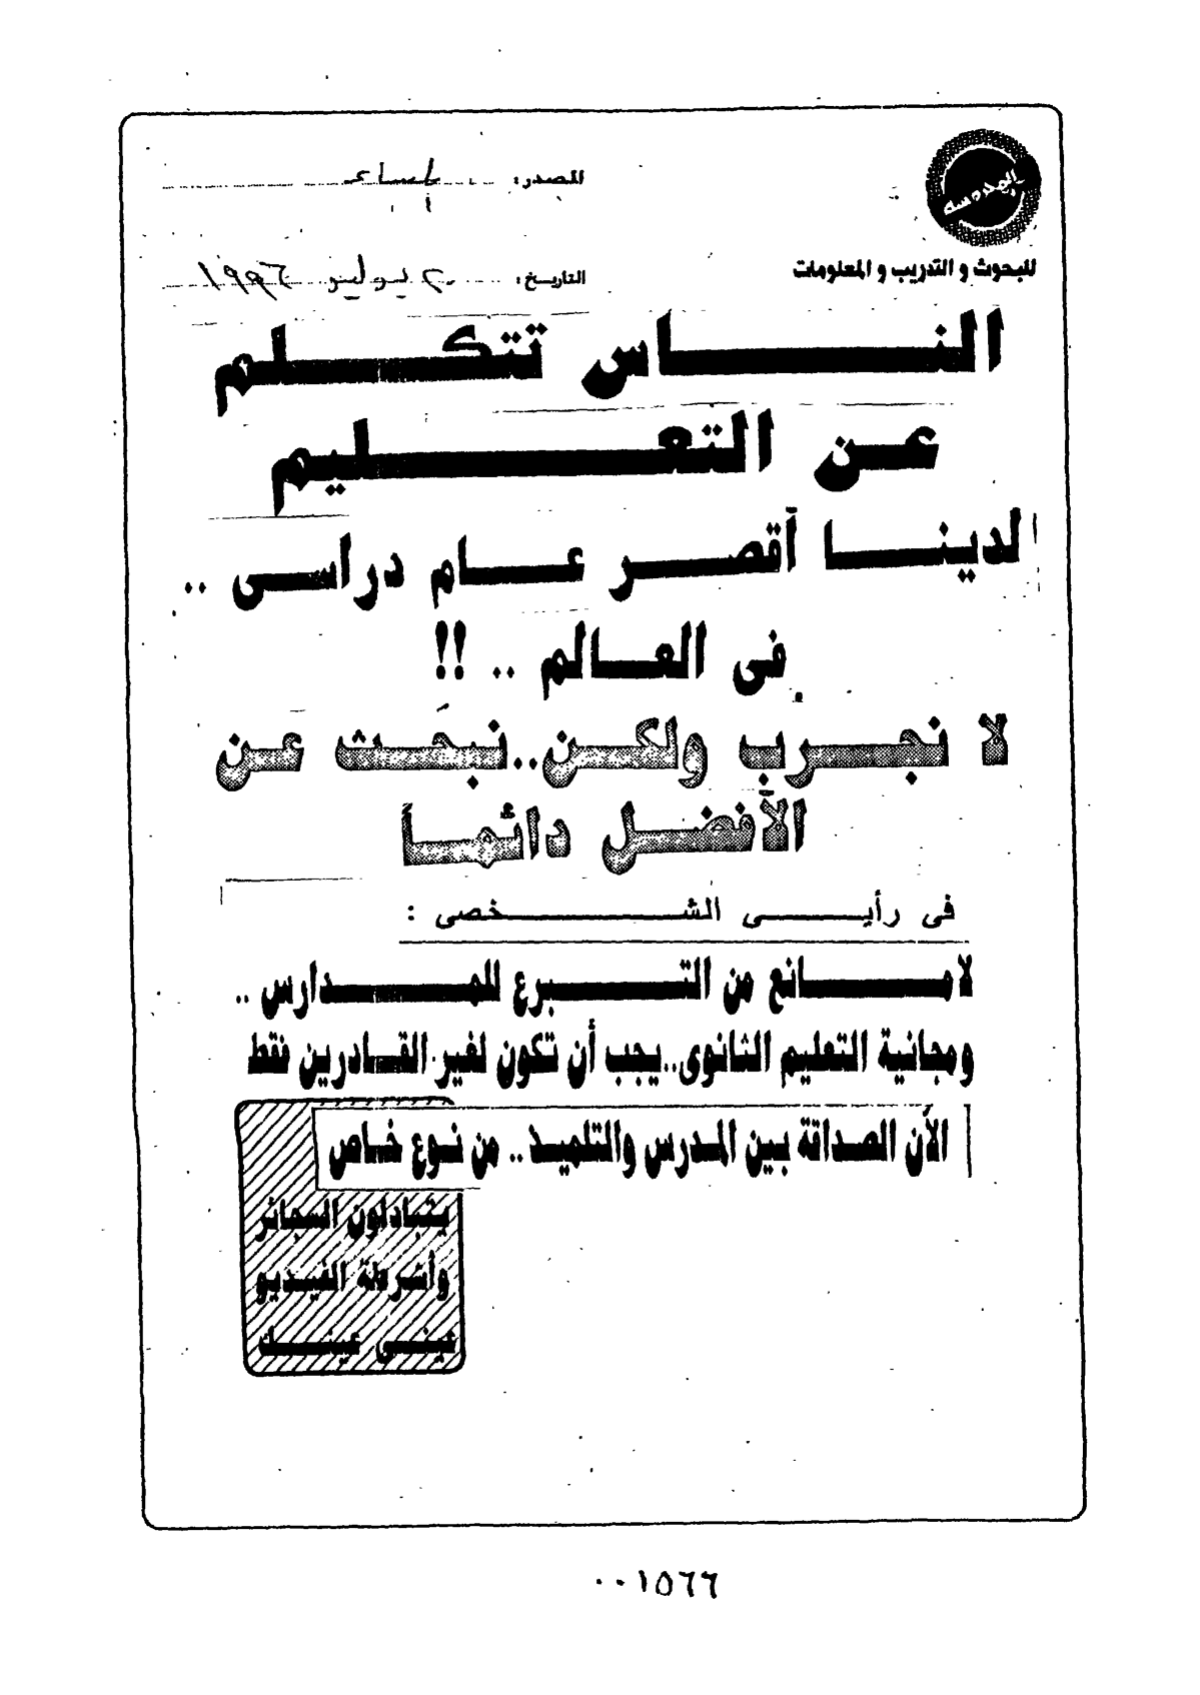 المدرسة
المصدر: المساء
للبحوث و التدريب و المعلومات
التاريخ: ٢٠ يوليو ١٩٩٦
الناس تتكلم
عن التعليم
لدينا أقصر عام دراسى ..
فى العالم .. !!
لا نجرب ولكن..نبحث عن
الأفضل دائماً
فى رأيى الشخصى :
لامانع من التبرع للمدارس ..
ومجانية التعليم الثانوى..يجب أن تكون لغير القادرين فقط
الآن الصداقة بين المدرس والتلميذ.. من نوع خاص
يتبادلون السجائر
وأشرطة الفيديو
عينى عينك
٠٠١٥٦٦